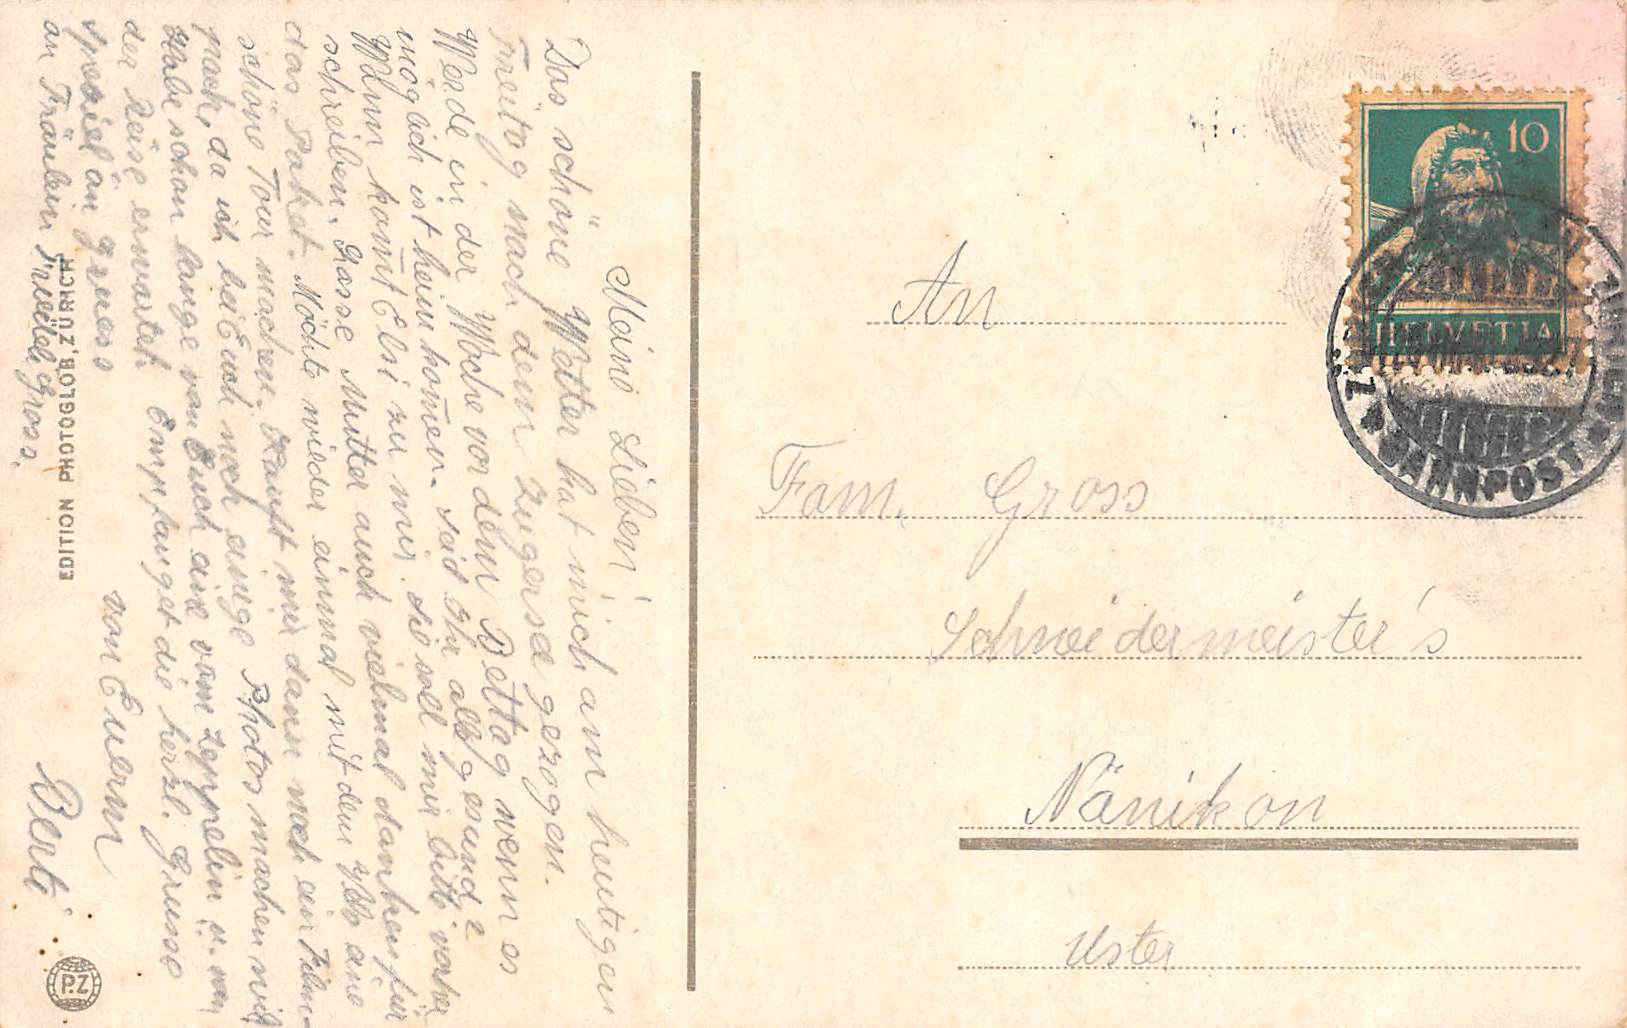 Meine Lieben!
Das schöne Wetter hat mich am heutigen
Freitag nach dem Zugersee gezogen.
Werde in der Woche vor dem Bettag wenn es
möglich ist heim kom̄en. Seid Ihr alle gesund?
Wann kom̄t Elsi zu mir. Sie soll mir bitte vorher
schreiben. Grosse Mutter auch vielmal danken für
das Paket. Möchte wieder einmal mit dem eine
schöne Tour machen. Kauft mir dann noch ein Film-
pack, da ich bei Euch noch einige Photos machen will
Habe schon lange von Euch eine vom Zeppelin u. von
der Reise erwartet. Empfanget die herzl. Grüsse
speziel an Gruess von Euerm
an Fräulein Friedeli Gross. Berti
EDITION PHOTOGLOB, ZÜRICH
P.Z
An
Fam. Gross
Schneidermeister's
Nänikon
Uster
10
HELVETIA
BAHNPOST